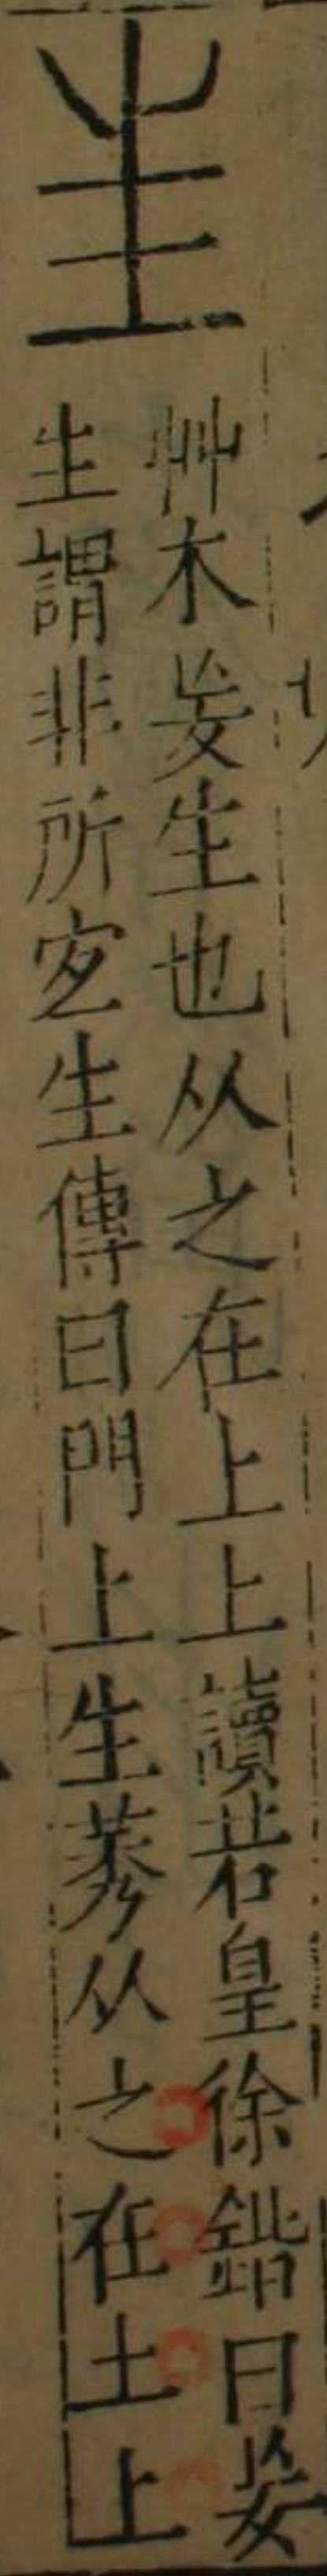 㞷
艸木妄生也从之在上上讀若皇徐鍇曰妄
生謂非所宐生傳曰門上生莠从之在土上